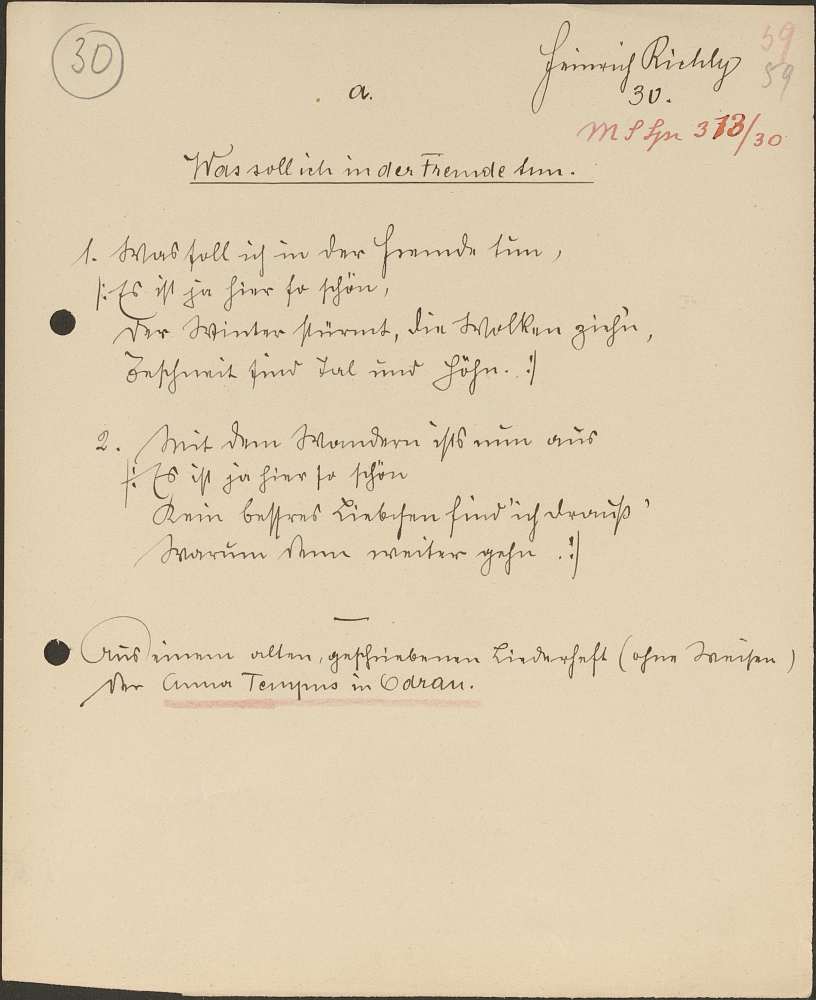 30
Heinrich Richly
59
59
a.
30.
313/30
Was soll ich in der Fremde tun.
1. Was soll ich in der Fremde tun,
/: Es ist ja hier so schön,
Der Winter stürmt, die Wolken zieh'n,
Beschneit sind Tal und Höhn. :/
2. Mit dem Wandern ists nun aus
/: Es ist ja hier so schön
Kein bessres Liebchen find' ich drauß'
Warum denn weiter gehn :/
Aus einem alten, geschriebenen Liederheft (ohne Weisen)
der Anna in Odrau.